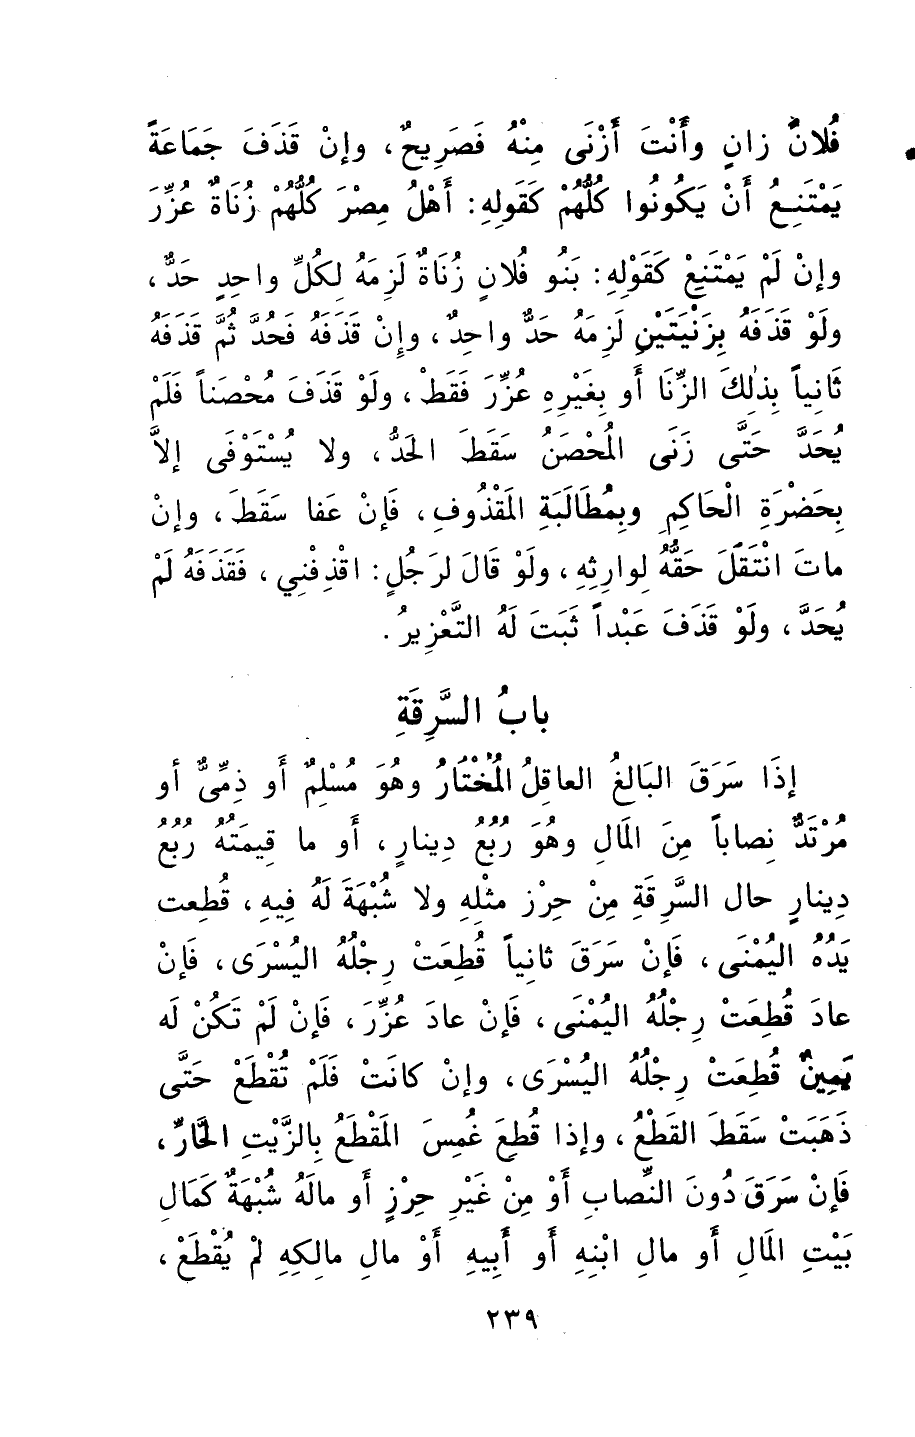 فُلانٌ زانٍ وأَنْتَ أَزْنَى مِنْهُ فَصَرِيحٌ، وإنْ قَذَفَ جَمَاعَةً
يَمْتَنِعُ أَنْ يَكُونُوا كُلُّهُمْ كَقَولِهِ: أَهْلُ مِصْرَ كُلُّهُمْ زُنَاةٌ عُزِّرَ
وإنْ لَمْ يَمْتَنِعْ كَقَوْلِهِ: بَنُو فُلانٍ زُنَاةٌ لَزِمَهُ لِكُلِّ واحِدٍ حَدٌّ،
ولَوْ قَذَفَهُ بِزَنْيَتَيْنِ لَزِمَهُ حَدٌّ واحِدٌ، وإِنْ قَذَفَهُ فَحُدَّ ثُمَّ قَذَفَهُ
ثَانِياً بِذٰلِكَ الزِّنَا أَو بِغَيْرِهِ عُزِّرَ فَقَطْ، ولَوْ قَذَفَ مُحْصَناً فَلَمْ
يُحَدَّ حَتَّى زَنَى المُحْصَنُ سَقَطَ الحَدُّ، ولا يُسْتَوْفَى إلاَّ
بِحَضْرَةِ الْحَاكِمِ وبِمُطَالَبَةِ المَقْذُوفِ، فَإنْ عَفا سَقَطَ، وإنْ
ماتَ انْتَقَلَ حَقُّهُ لِوارِثِهِ، ولَوْ قَالَ لرَجُلٍ: اقْذِفْنِي، فَقَذَفَهُ لَمْ
يُحَدَّ، ولَوْ قَذَفَ عَبْداً ثَبَتَ لَهُ التَّعْزِيرُ.
بابُ السَّرِقَةِ
إذَا سَرَقَ البَالغُ العاقِلُ المُخْتَارُ وهُوَ مُسْلِمٌ أَو ذِمِّىٌّ أو
مُرْتَدٌّ نِصاباً مِنَ المَالِ وهُوَ رُبُعُ دِينارٍ، أَو ما قِيمَتُهُ رُبُعُ
دِينارٍ حال السَّرِقَةِ مِنْ حِرْز مثْلِهِ ولا شُبْهَةَ لَهُ فِيهِ، قُطِعت
يَدُهُ اليُمْنَى، فَإنْ سَرَقَ ثانِياً قُطِعَتْ رِجْلُهُ اليُسْرَى، فَإنْ
عادَ قُطِعَتْ رِجْلُهُ اليُمْنَى، فَإنْ عادَ عُزِّرَ، فَإنْ لَمْ تَكُنْ لَه
يَمِينٌ قُطِعَتْ رِجْلُهُ اليُسْرَى، وإنْ كانَتْ فَلَمْ تُقْطَعْ حَتَّى
ذَهَبَتْ سَقَطَ القَطْعُ، وإذا قُطِعَ غُمِسَ المَقْطَعُ بِالزَّيْتِ الحَّارِّ،
فَإنْ سَرَقَ دُونَ النِّصابِ أَوْ مِنْ غَيْرِ حِرْزٍ أَو مالَهُ شُبْهَةٌ كَمَالِ
بَيْتِ المَالِ أَو مالِ ابْنِهِ أَو أَبِيهِ أَوْ مالِ مالِكِهِ لمْ يُقْطَعْ،
٢٣٩